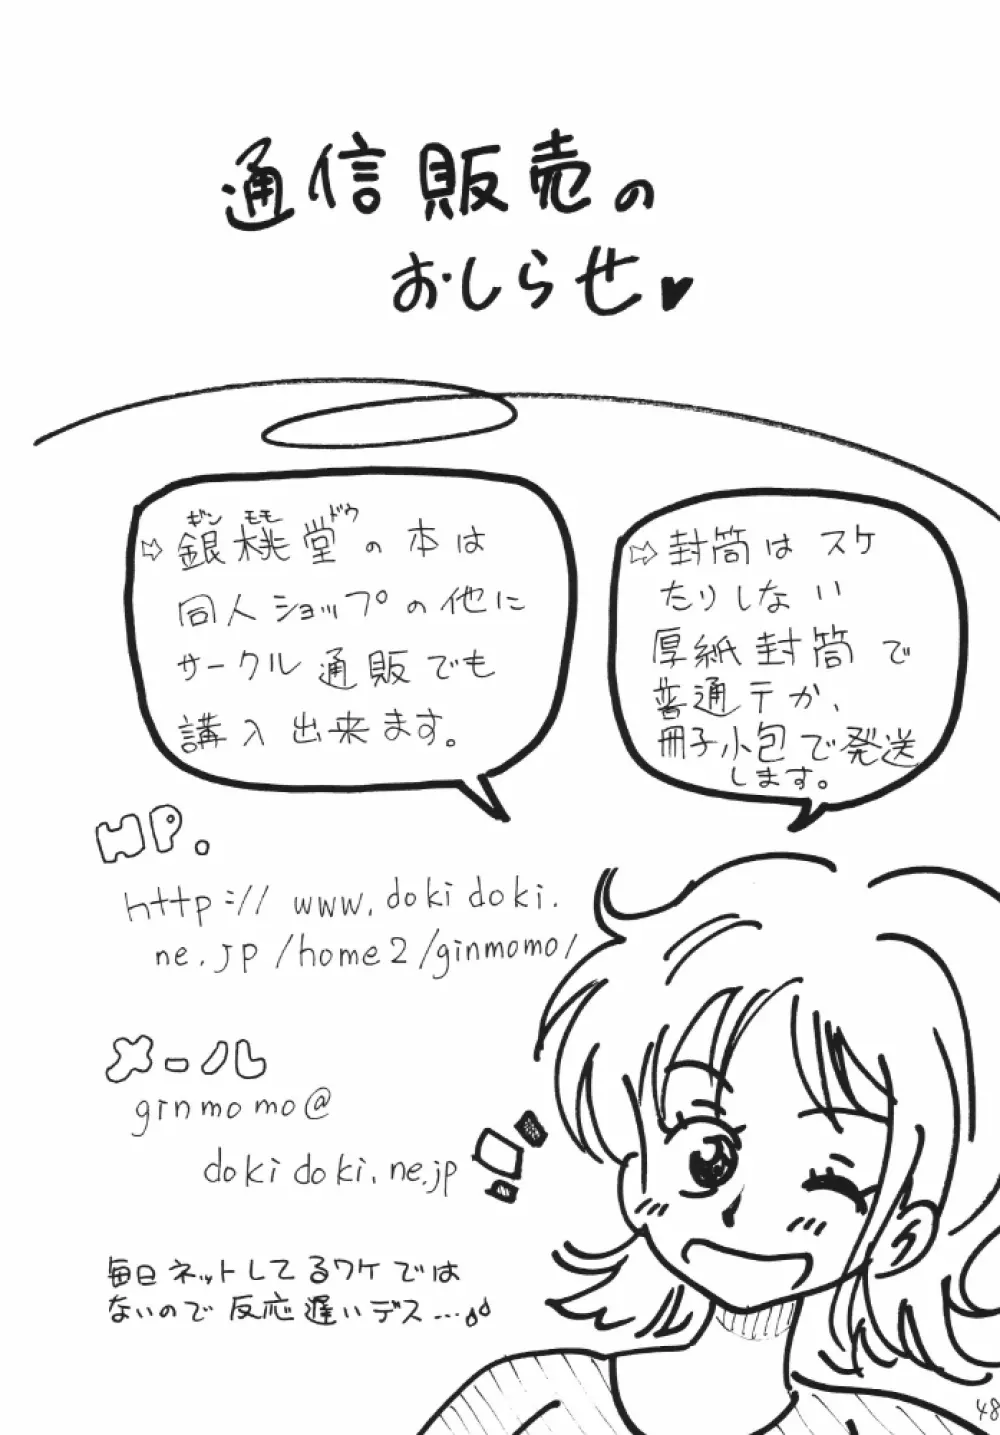 通信販売の
おしらせ♥
⇨銀桃堂の本は
ギンモモドウ
同人ショップの他に
サークル通販でも
講入出来ます。
⇨封筒はスケ
たりしない
厚紙封筒で
普通テか、
冊子小包で発送
します。
HP。
http://www.dokidoki.
ne.jp/home2/ginmomo/
メール
ginmomo@
dokidoki.ne.jp
毎日ネットしてるワケでは
ないので反応遅いデス…
48